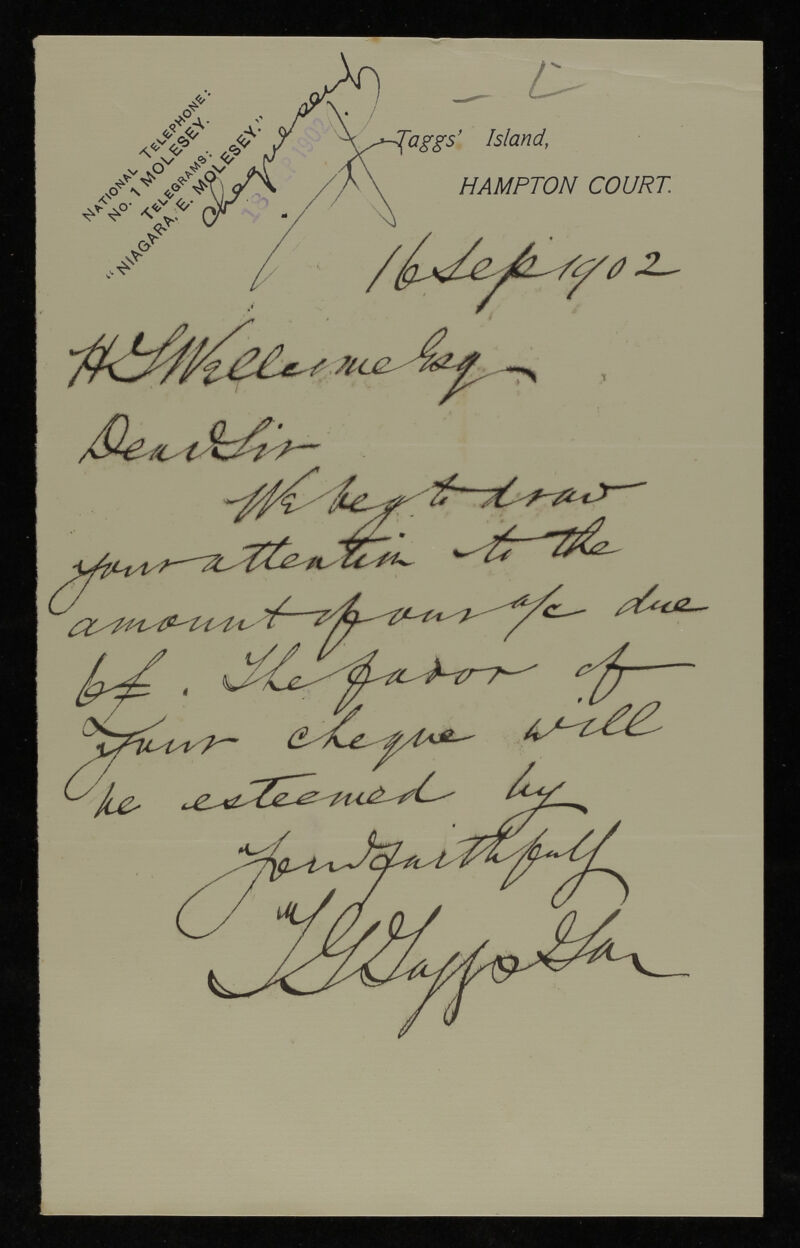 NATIONAL TELEPHONE:
No. 1 MOLESEY.
TELEGRAMS:
"NIAGARA, E. MOLESEY."
cheque sent
18 SEP 1902
Taggs' Island,
HAMPTON COURT.
16 Sep 1902
H S Wellcome Esq
Dear Sir
We beg to draw
your attention to the
amount of our a/c due
6£. The favor of
your cheque will
be esteemed by
Yours faithfully
T G Tagg & Son